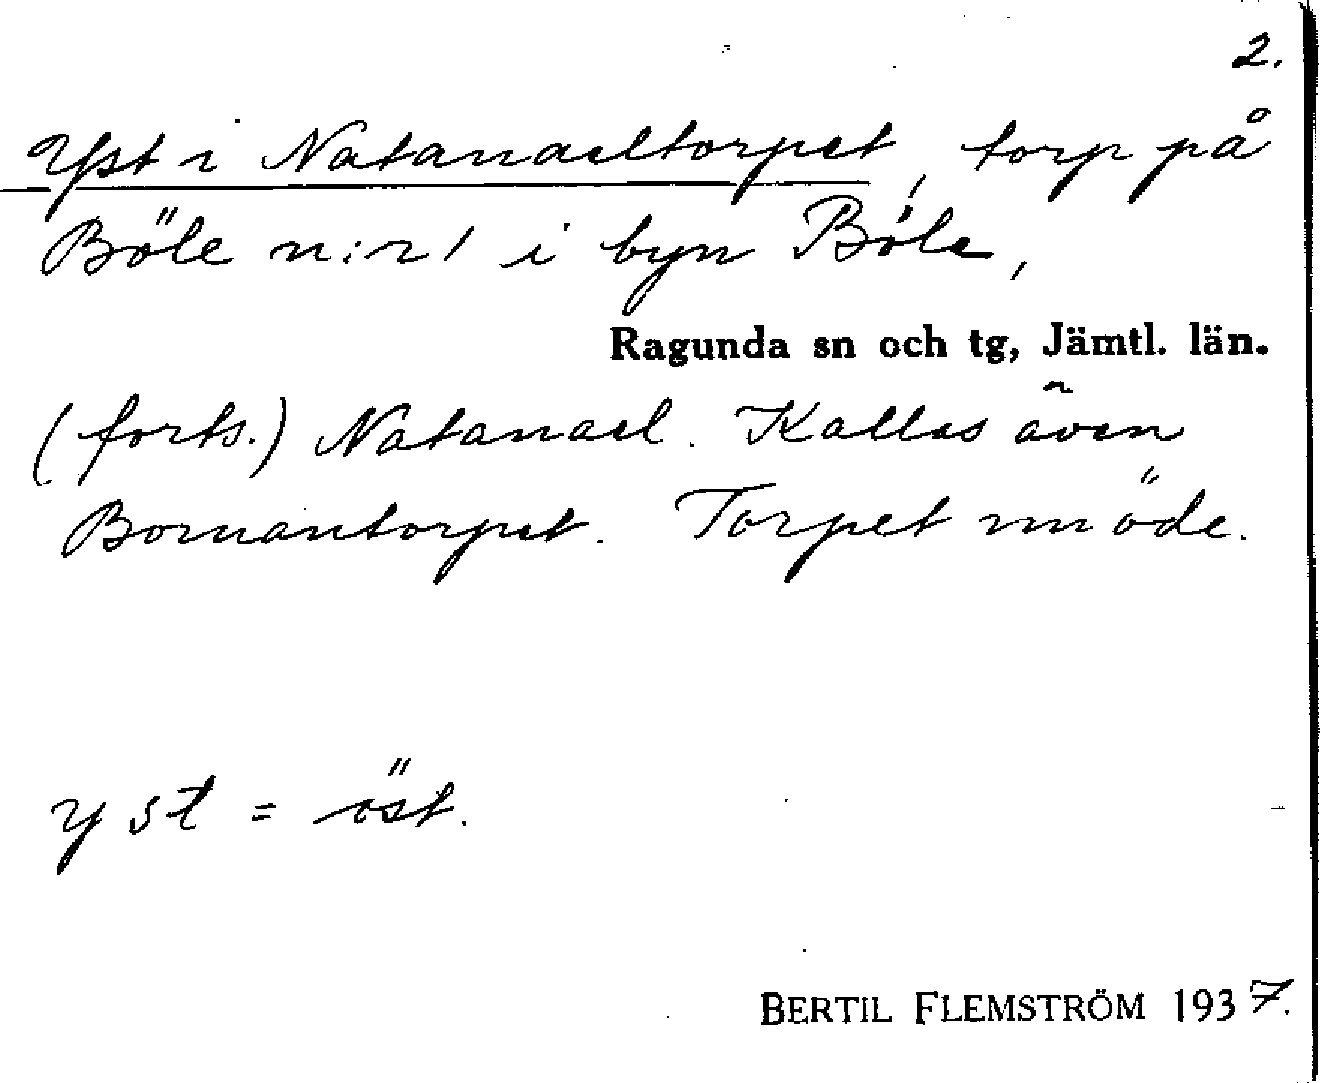 2.
Yst i Natanaeltorpet, torp på
Böle n:r 1 i byn Böle,
Ragunda sn och tg, Jämtl. län.
(forts.) Natanael. Kallas även
Bornantorpet. Torpet nu öde.
yst = öst.
BERTIL FLEMSTRÖM 1937.